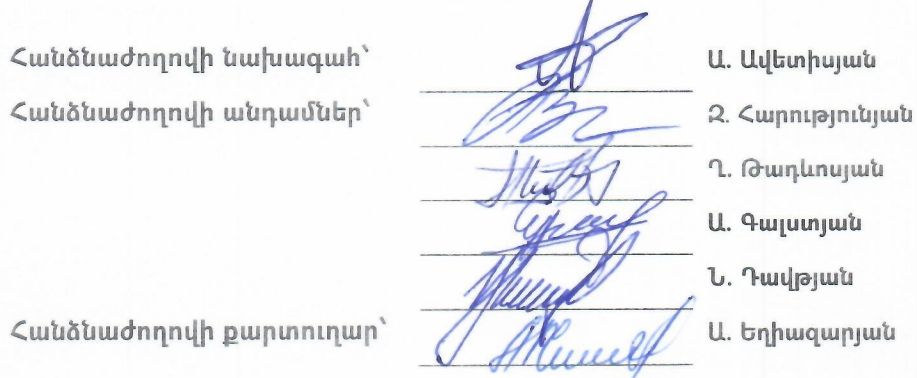 Հանձնաժողովի նախագահ՝ Ա. Ավետիսյան
Հանձնաժողովի անդամներ՝ Զ. Հարությունյան
Ղ. Թադևոսյան
Ա. Գալստյան
Ն. Դավթյան
Հանձնաժողովի քարտուղար՝ Ա. Եղիազարյան